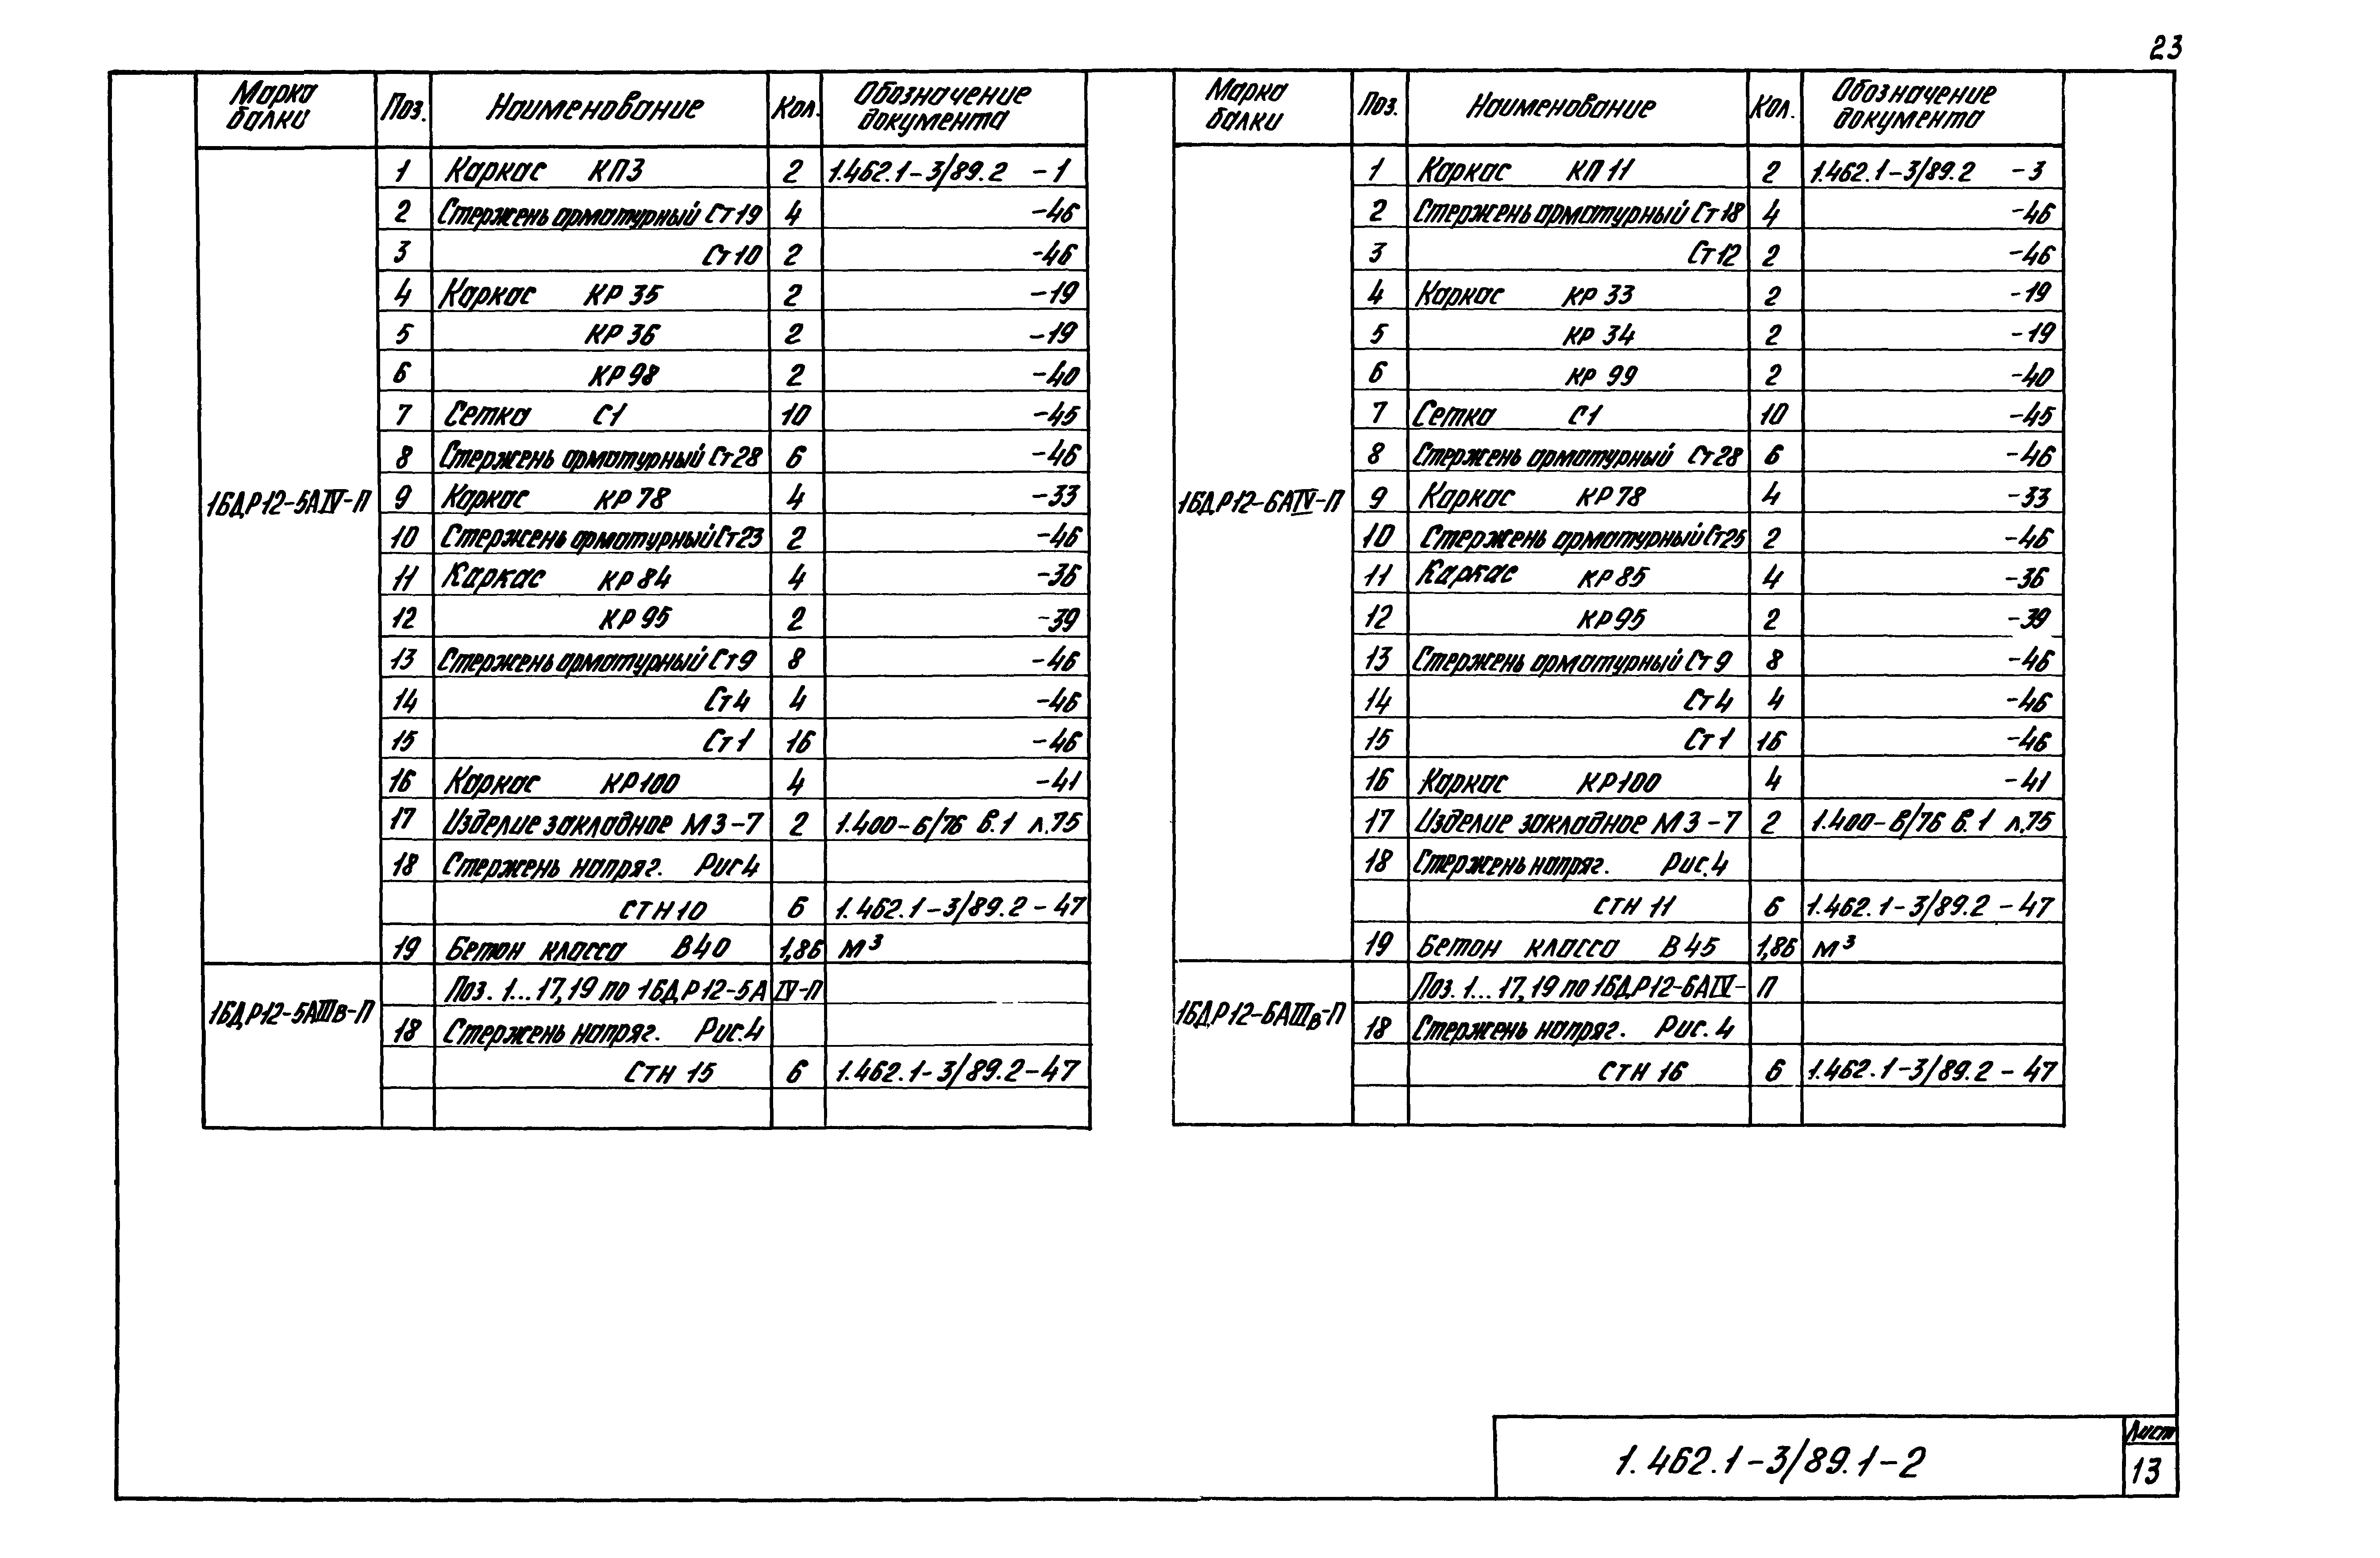 23
Марка балки Поз. Наименование Кол. Обозначение документа
1БДР12-5АIV-П
1 Каркас КП3 2 1.462.1-3/89.2 -1
2 Стержень арматурный Ст19 4 -46
3 Ст10 2 -46
4 Каркас КР 35 2 -19
5 КР 36 2 -19
6 КР 98 2 -40
7 Сетка С1 10 -45
8 Стержень арматурный Ст28 6 -46
9 Каркас КР 78 4 -33
10 Стержень арматурный Ст23 2 -46
11 Каркас КР 84 4 -36
12 КР 95 2 -39
13 Стержень арматурный Ст9 8 -46
14 Ст4 4 -46
15 Ст1 16 -46
16 Каркас КР100 4 -41
17 Изделие закладное МЗ-7 2 1.400-6/76 в.1 л.75
18 Стержень напряг. Рис4
СТН10 6 1.462.1-3/89.2-47
19 Бетон класса В40 1,86 м³
1БДР12-5АIIIв-П
Поз. 1...17,19 по 1БДР12-5АIV-П
18 Стержень напряг. Рис.4
СТН 15 6 1.462.1-3/89.2-47
Марка балки Поз. Наименование Кол. Обозначение документа
1БДР12-6АIV-П
1 Каркас КП 11 2 1.462.1-3/89.2 -3
2 Стержень арматурный Ст18 4 -46
3 Ст12 2 -46
4 Каркас КР 33 2 -19
5 КР 34 2 -19
6 КР 99 2 -40
7 Сетка С1 10 -45
8 Стержень арматурный Ст28 6 -46
9 Каркас КР 78 4 -33
10 Стержень арматурный Ст25 2 -46
11 Каркас КР 85 4 -36
12 КР 95 2 -39
13 Стержень арматурный Ст9 8 -46
14 Ст4 4 -46
15 Ст1 16 -46
16 Каркас КР100 4 -41
17 Изделие закладное МЗ-7 2 1.400-6/76 в.1 л.75
18 Стержень напряг. Рис.4
СТН 11 6 1.462.1-3/89.2-47
19 Бетон класса В45 1,86 м³
1БДР12-6АIIIв-П
Поз. 1...17,19 по 1БДР12-6АIV-П
18 Стержень напряг. Рис. 4
СТН 16 6 1.462.1-3/89.2-47
1.462.1-3/89.1-2
Лист
13